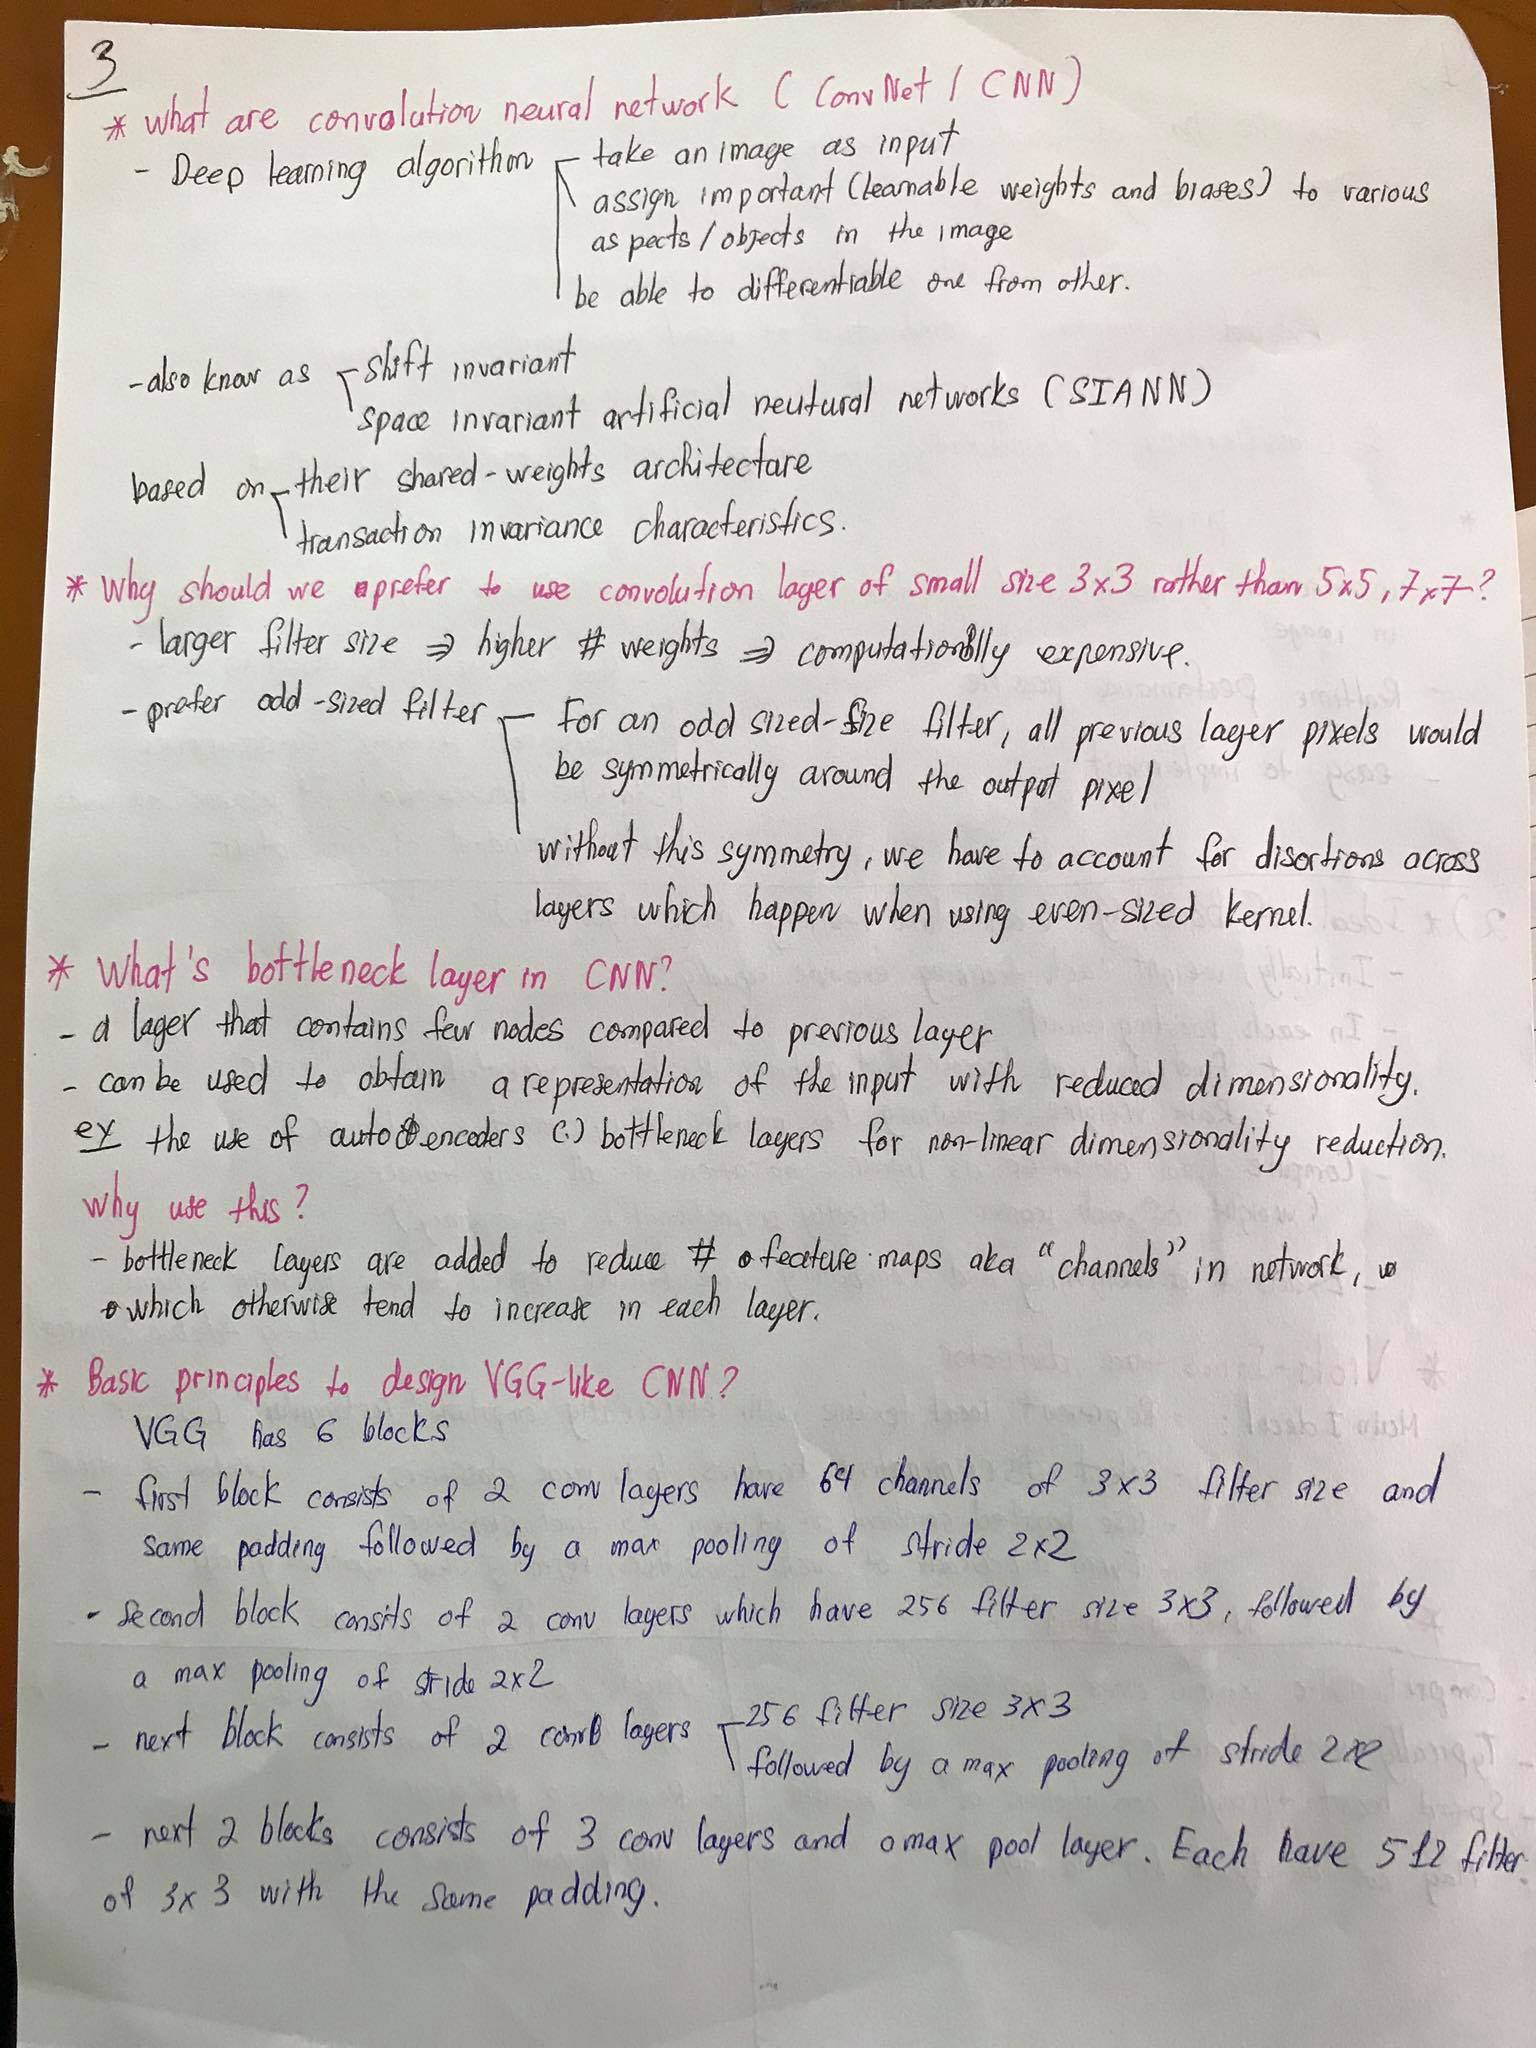 3
* What are convolution neural network ( ConvNet / CNN )
- Deep learning algorithm take an image as input
assign important (learnable weights and biases) to various
aspects / objects in the image
be able to differentiable one from other.
- also know as shift invariant
space invariant artificial neutural networks (SIANN)
based on their shared-weights architecture
transaction invariance characteristics.
* Why should we prefer to use convolution layer of small size 3x3 rather than 5x5, 7x7?
- larger filter size ⇒ higher # weights ⇒ computationally expensive.
- prefer odd-sized filter For an odd sized-size filter, all previous layer pixels would
be symmetrically around the output pixel
without this symmetry, we have to account for disortions across
layers which happen when using even-sized kernel.
* What's bottleneck layer in CNN?
- a layer that contains few nodes compared to previous layer
- can be used to obtain a representation of the input with reduced dimensionality.
ex the use of autoencoders (.) bottleneck layers for non-linear dimensionality reduction.
Why use this?
- bottleneck layers are added to reduce # feature maps aka "channels" in network,
which otherwise tend to increase in each layer.
* Basic principles to design VGG-like CNN?
VGG has 6 blocks
- first block consists of 2 conv layers have 64 channels of 3x3 filter size and
same padding followed by a max pooling of stride 2x2
- second block consits of 2 conv layers which have 256 filter size 3x3, followed by
a max pooling of stride 2x2
- next block consists of 2 conv layers 256 filter size 3x3
followed by a max pooling of stride 2x2
- next 2 blocks consists of 3 conv layers and a max pool layer. Each have 512 filter
of 3x3 with the same padding.